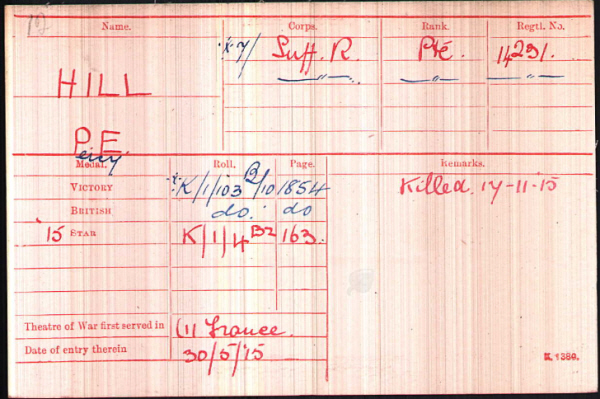 12
Name. Corps. Rank. Regtl. No.
x·y/ Suff. R. Pte. 14291.
HILL —〃— —〃— —〃—
P. E.
ercy
Medal. Roll. Page. Remarks.
VICTORY K/1/103 B/10 1854 Killed 17-11-15
BRITISH do. do
15 STAR K/1/4 B2 163.
Theatre of War first served in (1) France.
Date of entry therein 30/5/15
K. 1380.